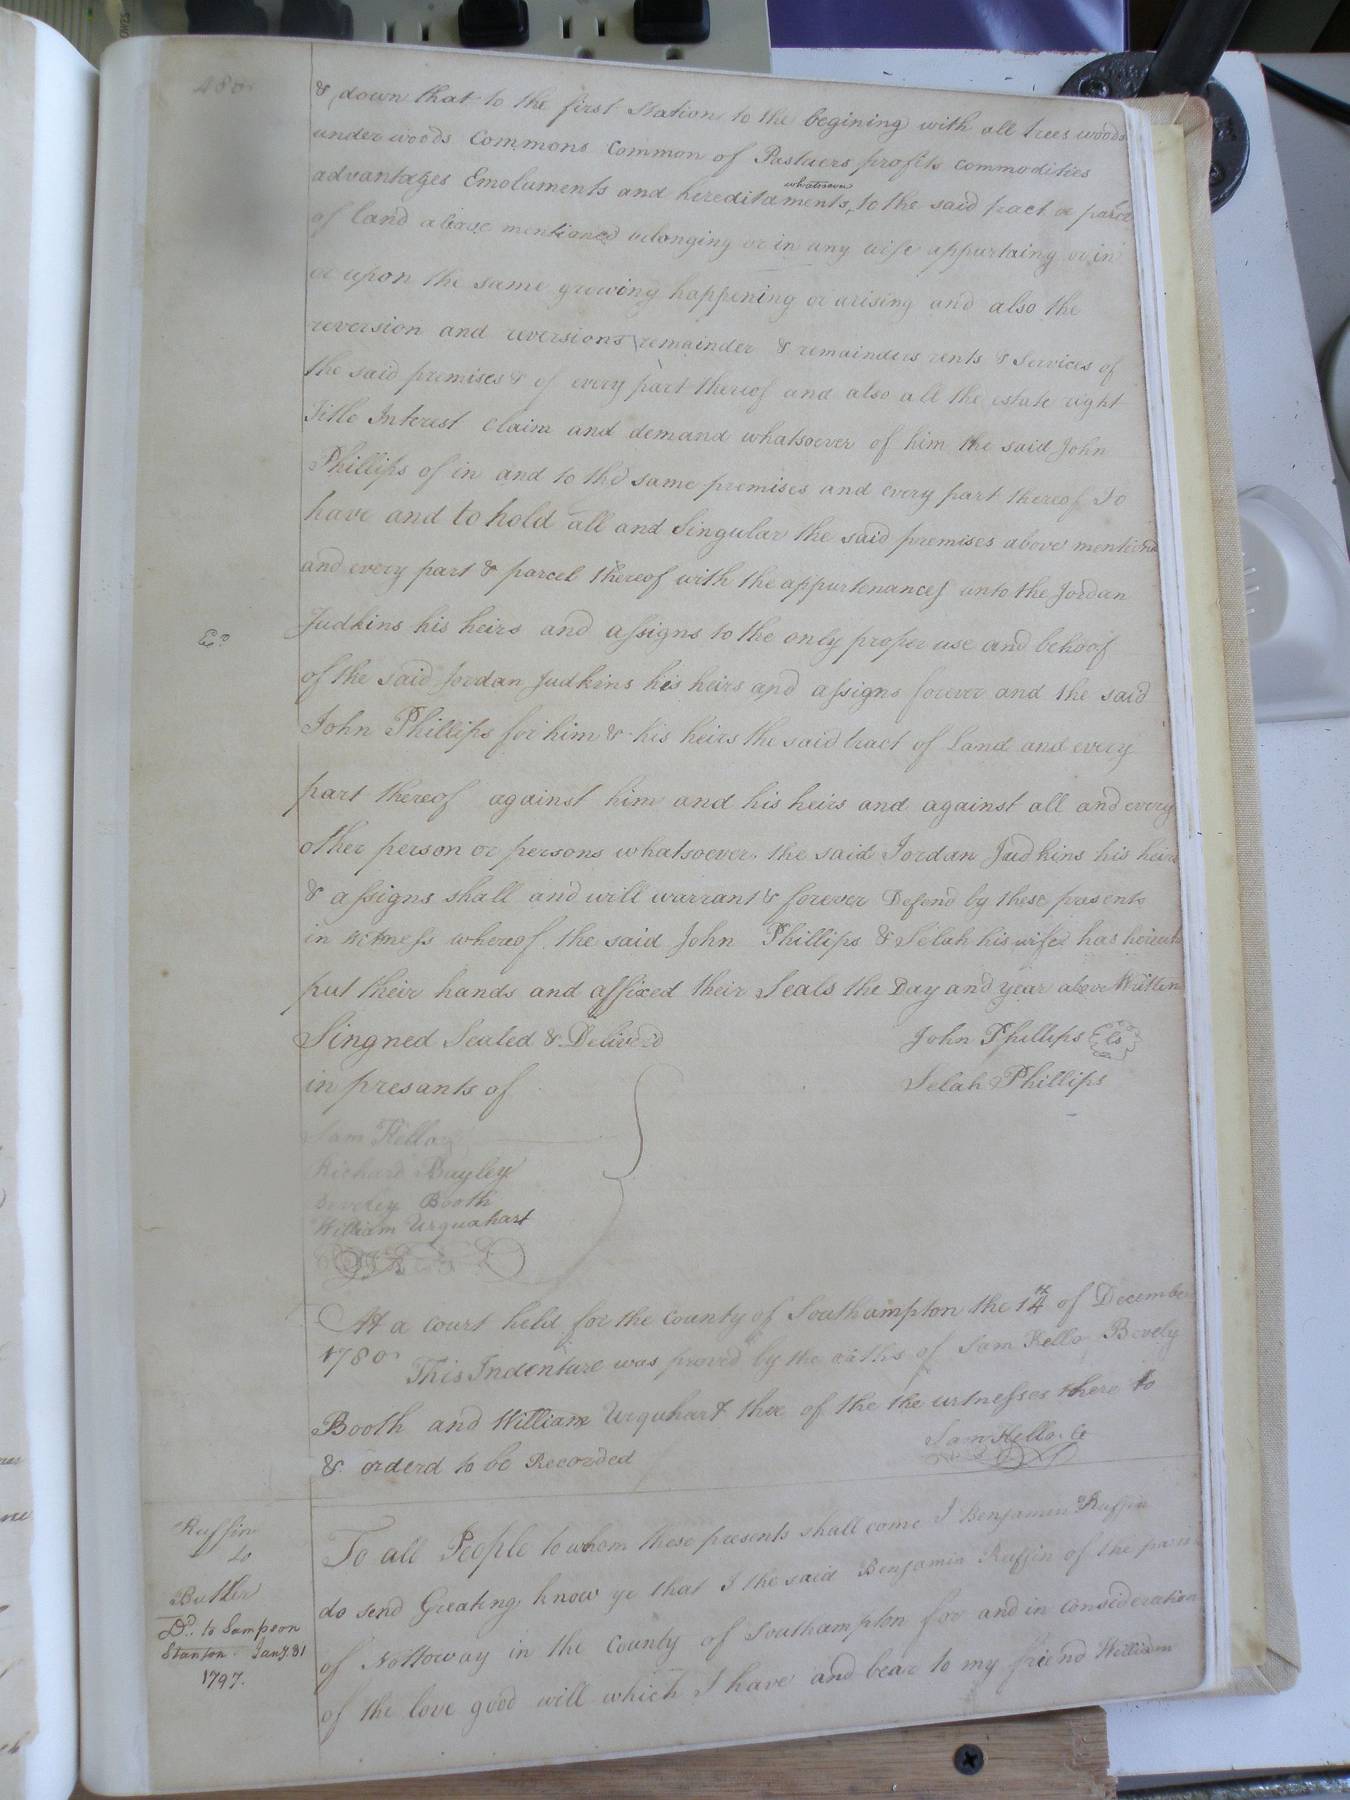 480
& down that to the first Station to the begining with all trees woods
under woods Commons Common of Pastuers profits commodities
advantages Emoluments and hereditaments whatsoever to the said tract or parcel
of land above mentioned belonging or in any wise appurtaing or in
or upon the same growing happening or arising and also the
reversion and reversions remainder & remainders rents & Services of
the said premises & of every part thereof and also all the estate right
Title Interest Claim and demand whatsoever of him the said John
Phillips of in and to the same premises and every part thereof To
have and to hold all and Singular the said premises above mentiond
and every part & parcel thereof with the appurtenances unto the Jordan
Judkins his heirs and assigns to the only proper use and behoof
of the said Jordan Judkins his heirs and assigns forever and the said
John Phillips for him & his heirs the said tract of Land and every
part thereof against him and his heirs and against all and every
other person or persons whatsoever the said Jordan Judkins his heirs
& assigns shall and will warrant & forever Defend by these presents
in witness whereof the said John Phillips & Selah his wife has hereunto
put their hands and affixed their Seals the Day and year above Written
Singned Sealed & Deliverd
John Phillips Ls
in presants of
Selah Phillips
Sam Kello
Richard Bayley
Beverley Booth
William Urquahart
At a court held for the County of Southampton the 14th of December
1780 This Indenture was proved by the oaths of Sam Kello Bevely
Booth and William Urquhart thee of the the witnesses there to
& orderd to be Recorded
Sam Kello. C
Ruffin
to
Buther
Dd. to Sampson
Stanton Jany. 31
1797.
To all People to whom these presents shall come I Benjamin Ruffin
do send Greating know ye that I the said Benjamin Ruffin of the parish
of Nottoway in the County of Southampton for and in Consideration
of the love good will which I have and bear to my friend William